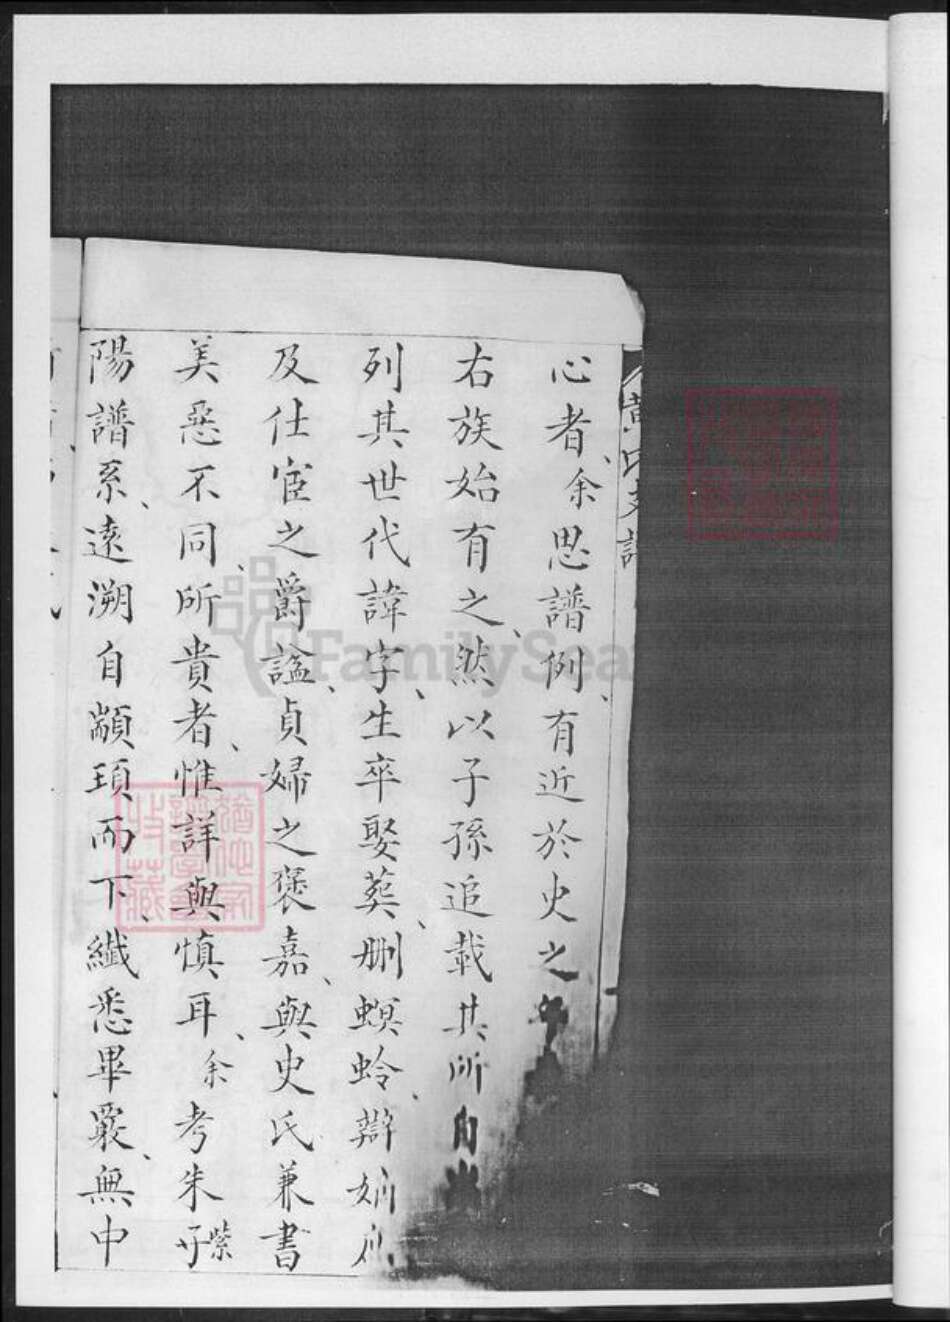 黃氏支譜
心者余思譜例有近於史之
右族始有之然以子孫追載其所自
列其世代諱字生卒娶葬刪螟蛉辯嫡
及仕宦之爵謚貞婦之褒嘉與史氏兼書
美惡不同所貴者惟詳與慎耳余考朱子紫
陽譜系遠溯自顓頊而下纖悉畢嚴無中
FamilySea